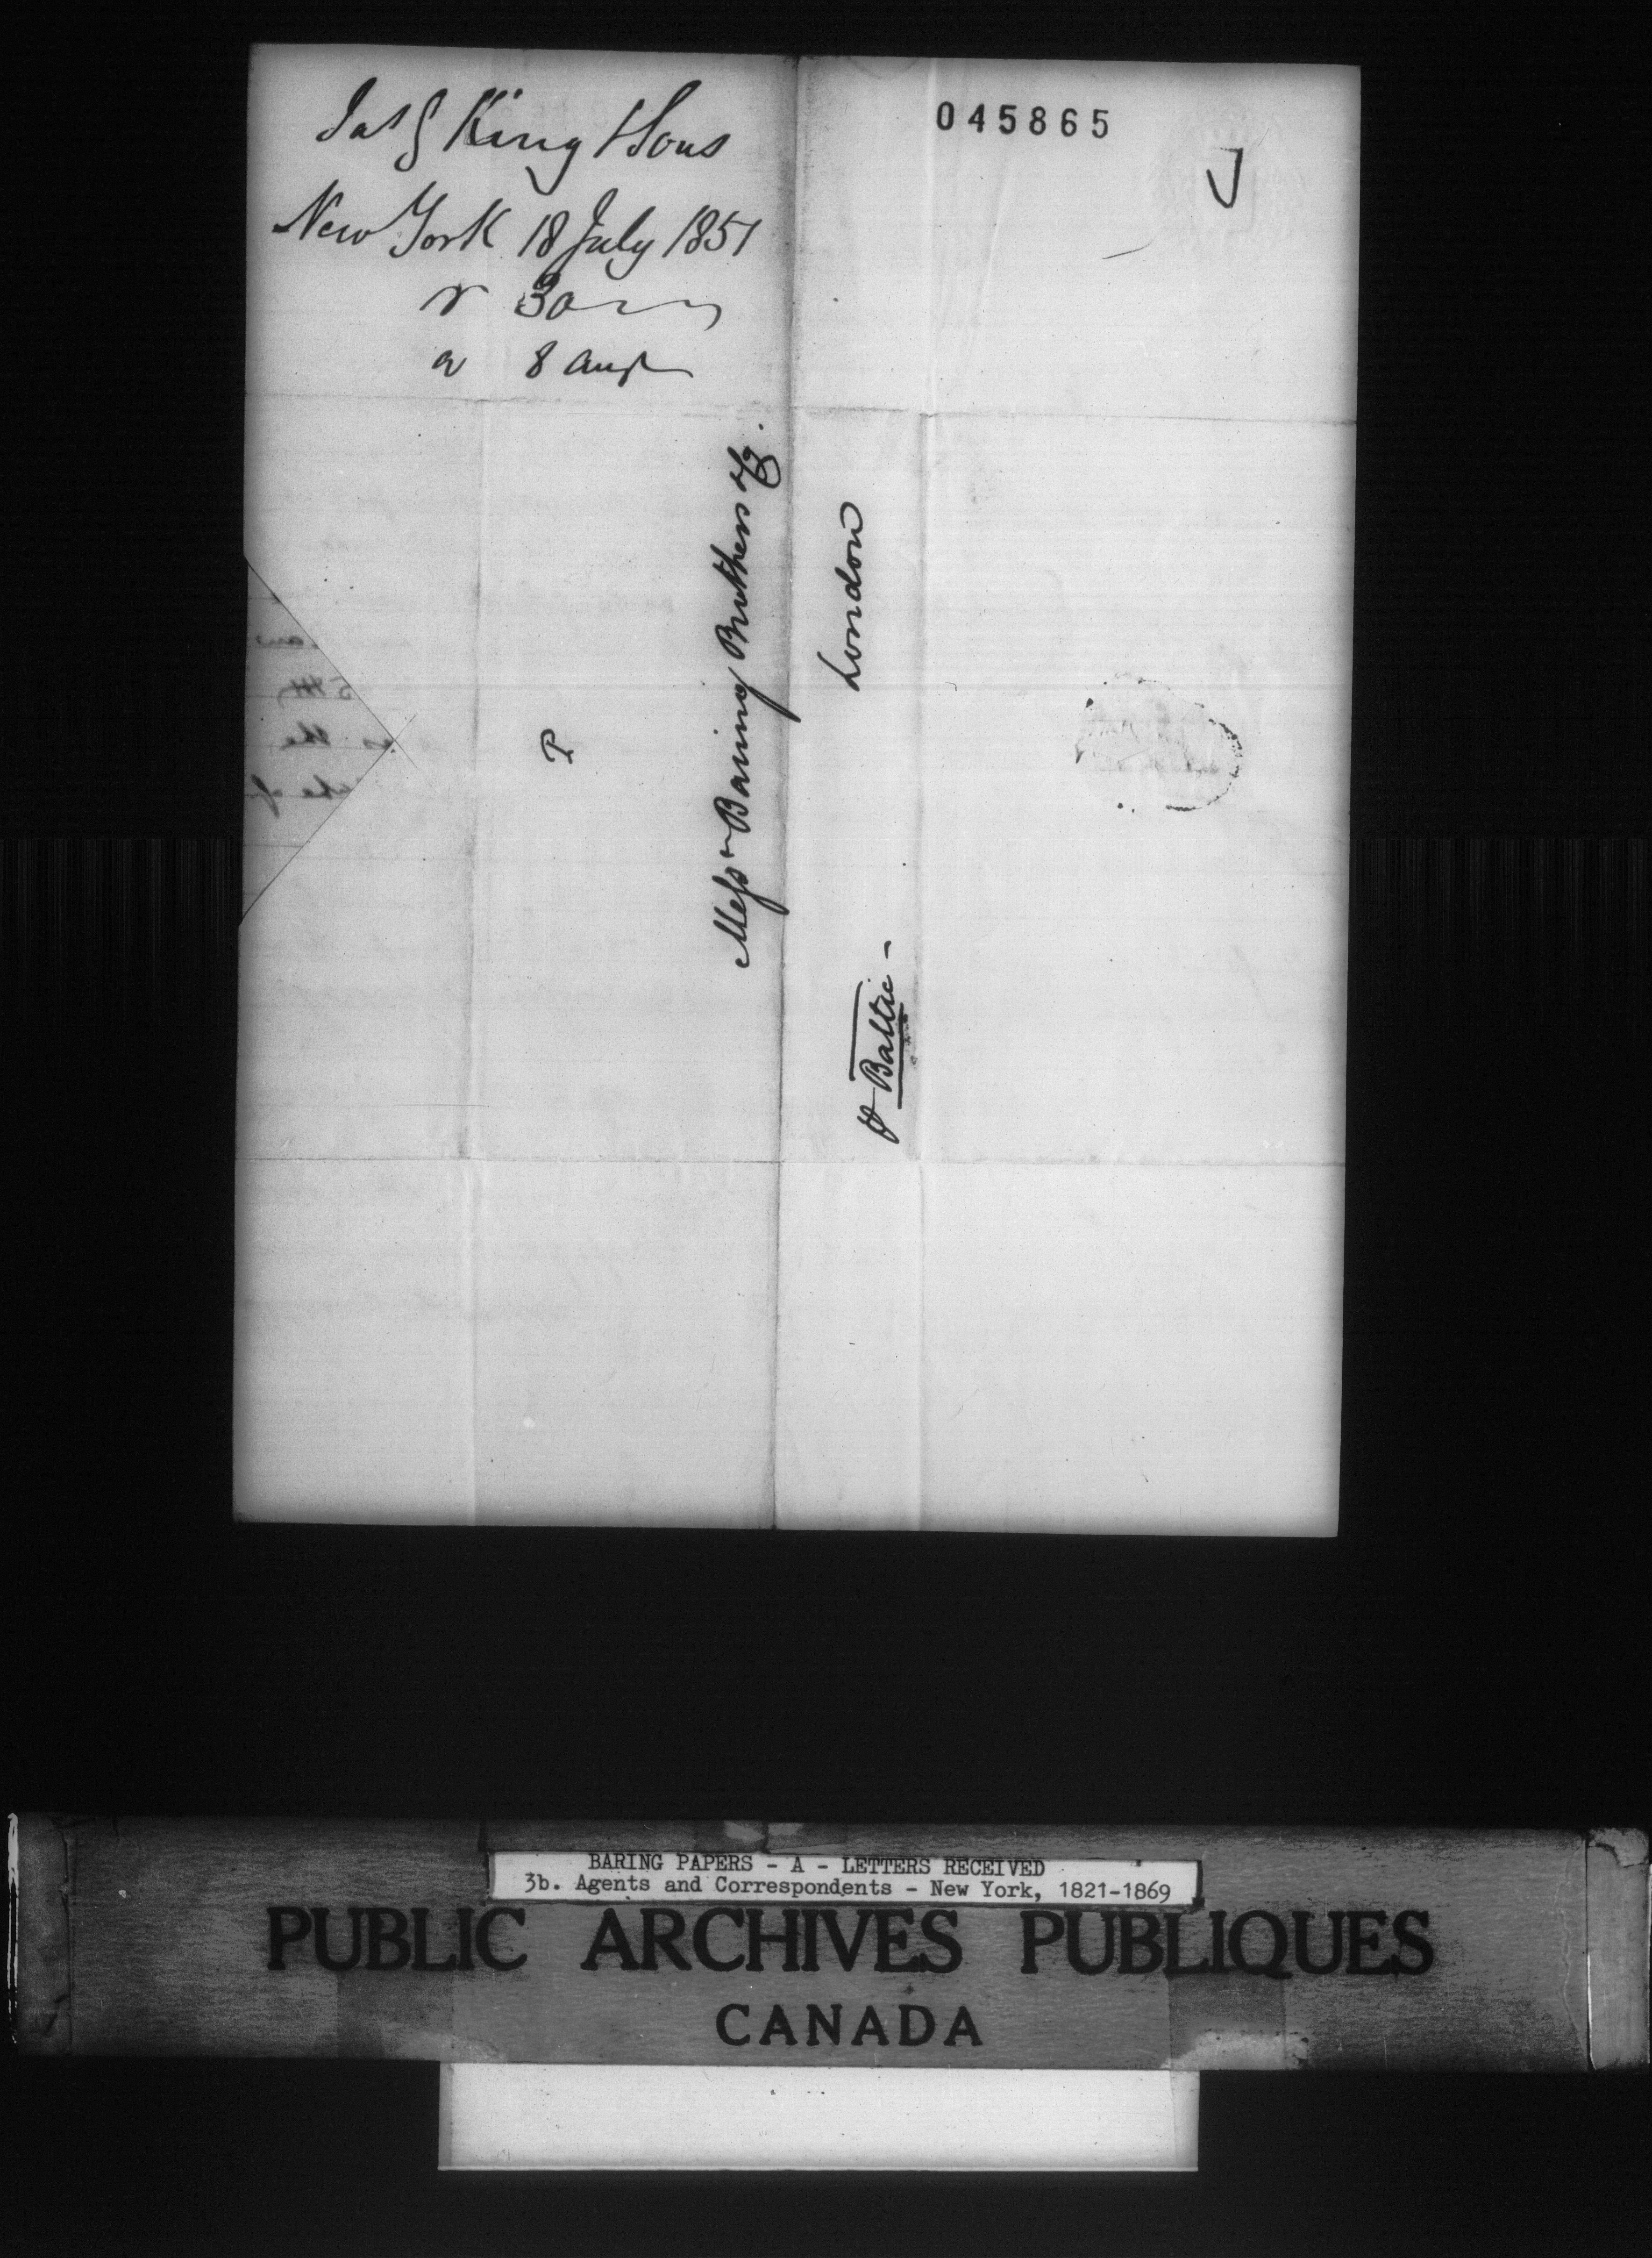 Jas G King & Sons
New York 18 July 1851
r 30
a 8 Aug
045865
J
P
Messrs Baring Brothers & Co.
London
P Baltic -
BARING PAPERS - A - LETTERS RECEIVED
3b. Agents and Correspondents - New York, 1821-1869
PUBLIC ARCHIVES PUBLIQUES
CANADA